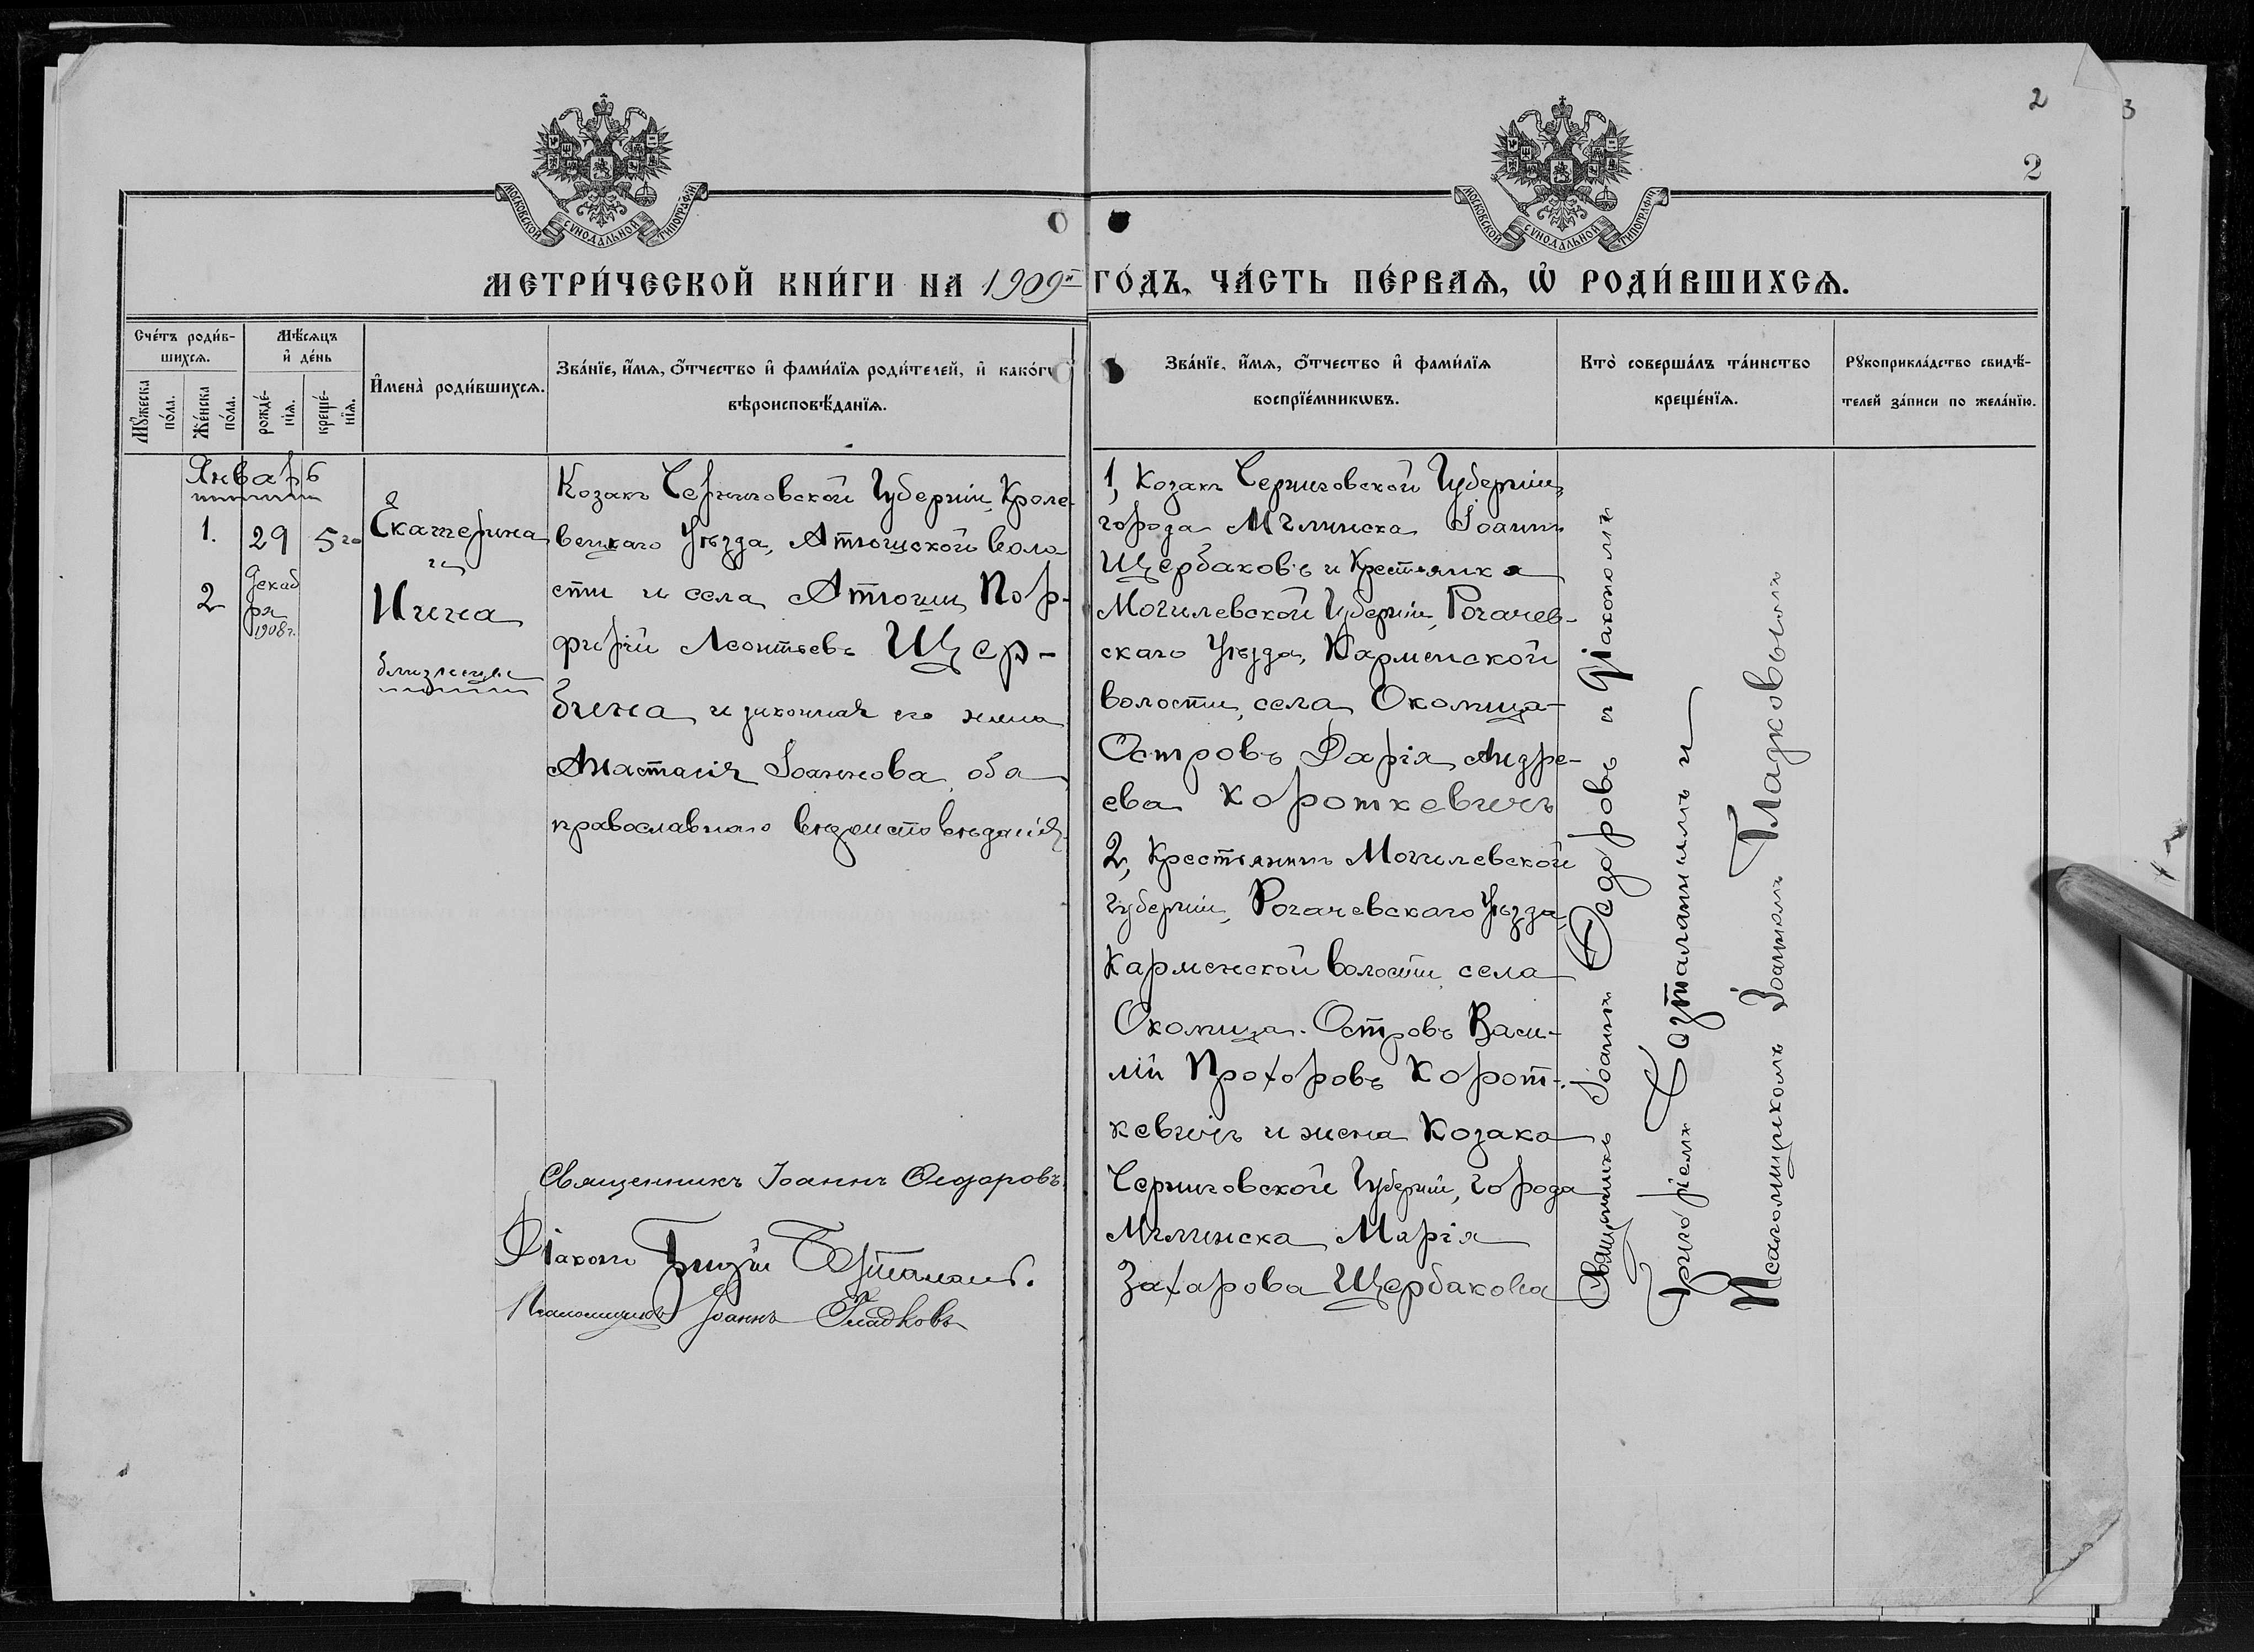 2
3
2
МОСКОВСКОЙ СУНОДАЛЬНОЙ ТИПОГРАФІИ
МОСКОВСКОЙ СУНОДАЛЬНОЙ ТИПОГРАФІИ
МЕТРИ́ЧЕСКОЙ КНИ́ГИ НА 1909й ГО́ДЪ, ЧА́СТЬ ПЕ́РВАѦ, Ѡ҆ РОДИ́ВШИХСѦ.
Сче́тъ роди́в-
шихсѧ.
Мꙋжеска
по́ла.
Же́нска
по́ла.
Мѣ́сѧцъ
и҆ де́нь
рожде́-
нїѧ.
креще́-
нїѧ.
И҆мена̀ роди́вшихсѧ.
Зва́нїе, и҆́мѧ, ѻ҆́тчество и҆ фами́лїѧ роди́телей, и҆ како́гѡ
вѣроисповѣ́данїѧ.
Зва́нїе, и҆́мѧ, ѻ҆́тчество и҆ фами́лїѧ
воспрїе́мникѡвъ.
Кто̀ соверша́лъ та́инство
креще́нїѧ.
Рꙋкоприкла́дство свидѣ́-
телей за́писи по жела́нїю.
Январь
1.
2
29
Декаб
ря
1908 г.
5го
Екатерина
и
Нина
близнецы
Козакъ Черниговской Губерніи, Кроле-
вецкаго Уѣзда, Атюшской воло
сти и села Атюши Пор-
фирій Леонтьевъ Щер-
бина и законная его жена
Анастасія Іоаннова, оба
православнаго вѣроисповѣданія.
Священникъ Іоаннъ Ѳедоровъ
Діаконъ
Псаломщикъ Іоаннъ Гладковъ
1, Козакъ Черниговской Губерніи,
города Мглинска Іоаннъ
Щербаковъ и Крестьянка
Могилевской Губерніи, Рогачев-
скаго Уѣзда, Карменской
волости, села Околица-
Островъ Дарія Андре-
ева Короткевичъ
2, Крестьянинъ Могилевской
Губерніи, Рогачевскаго Уѣзда,
Карменской волости, села
Околица-Островъ Васи-
лій Прохоровъ Корот-
кевичъ и жена Козака
Черниговской Губерніи, города
Мглинска Марія
Захарова Щербакова
Священникъ Іоаннъ Ѳедоровъ съ Діакономъ
Григоріемъ и
Псаломщикомъ Іоанномъ Гладковымъ